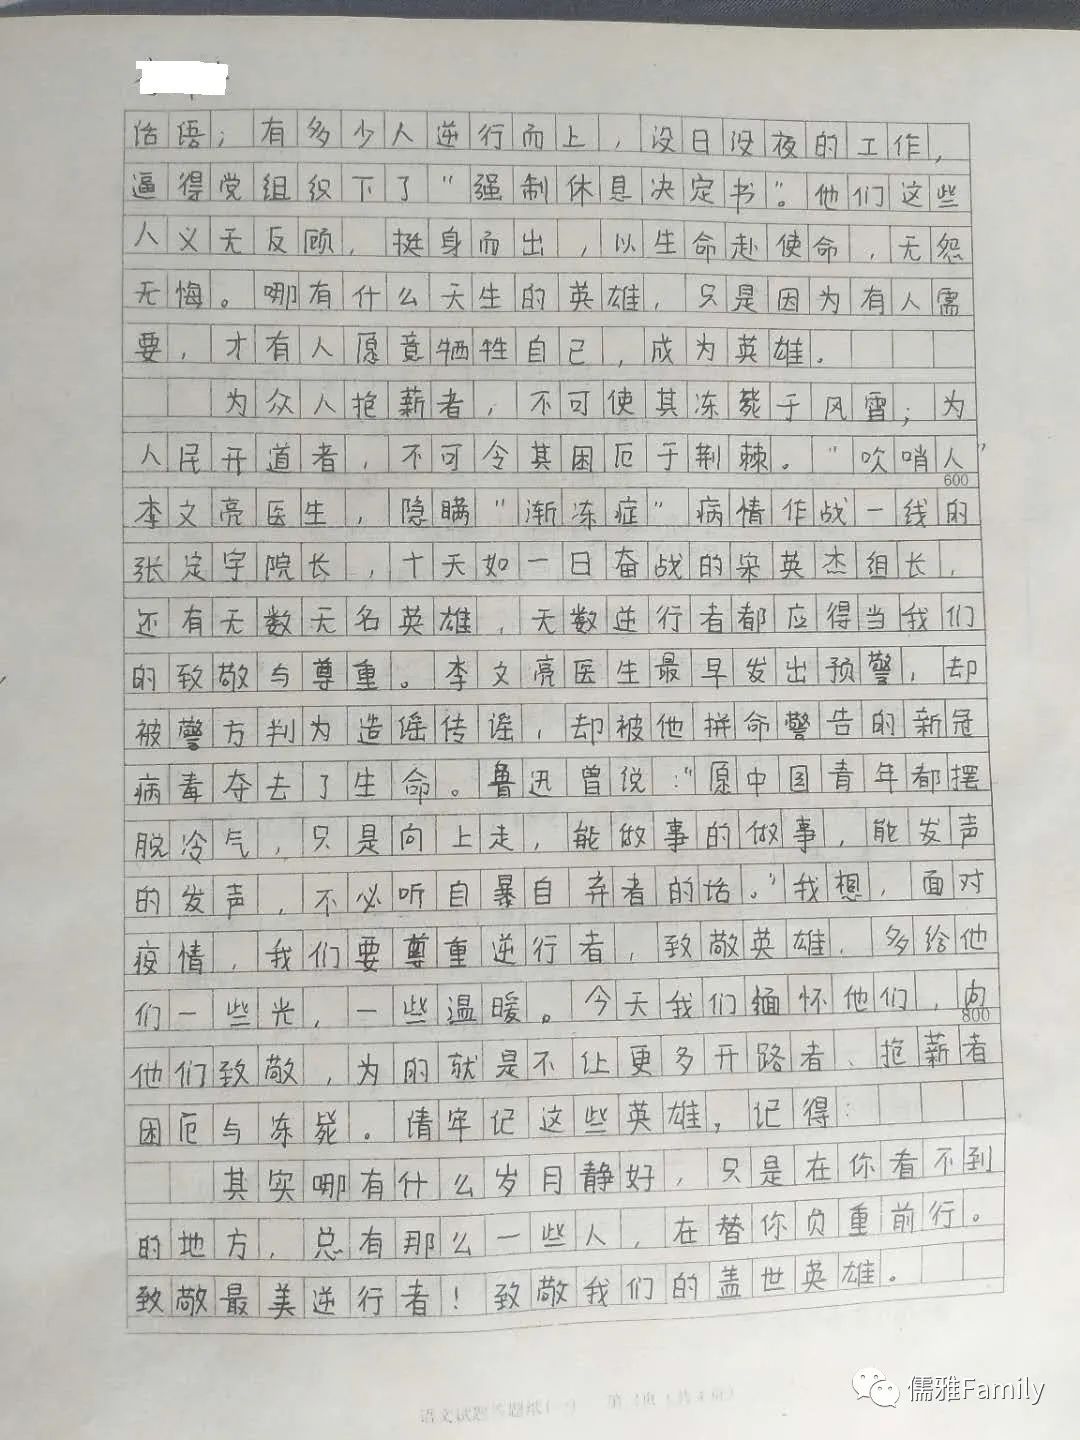 话语；有多少人逆行而上，没日没夜的工作，
逼得党组织下了“强制休息决定书”。他们这些
人义无反顾，挺身而出，以生命赴使命，无怨
无悔。哪有什么天生的英雄，只是因为有人需
要，才有人愿意牺牲自己，成为英雄。
为众人抱薪者，不可使其冻毙于风雪；为
人民开道者，不可令其困厄于荆棘。“吹哨人”
600
李文亮医生，隐瞒“渐冻症”病情作战一线的
张定宇院长，十天如一日奋战的宋英杰组长，
还有无数无名英雄，无数逆行者都应得当我们
的致敬与尊重。李文亮医生最早发出预警，却
被警方判为造谣传谣，却被他拼命警告的新冠
病毒夺去了生命。鲁迅曾说：“愿中国青年都摆
脱冷气，只是向上走，能做事的做事，能发声
的发声，不必听自暴自弃者的话。”我想，面对
疫情，我们要尊重逆行者，致敬英雄，多给他
们一些光，一些温暖。今天我们缅怀他们，向
800
他们致敬，为的就是不让更多开路者、抱薪者
困厄与冻毙。请牢记这些英雄，记得：
其实哪有什么岁月静好，只是在你看不到
的地方，总有那么一些人，在替你负重前行。
致敬最美逆行者！致敬我们的盖世英雄。
儒雅Family